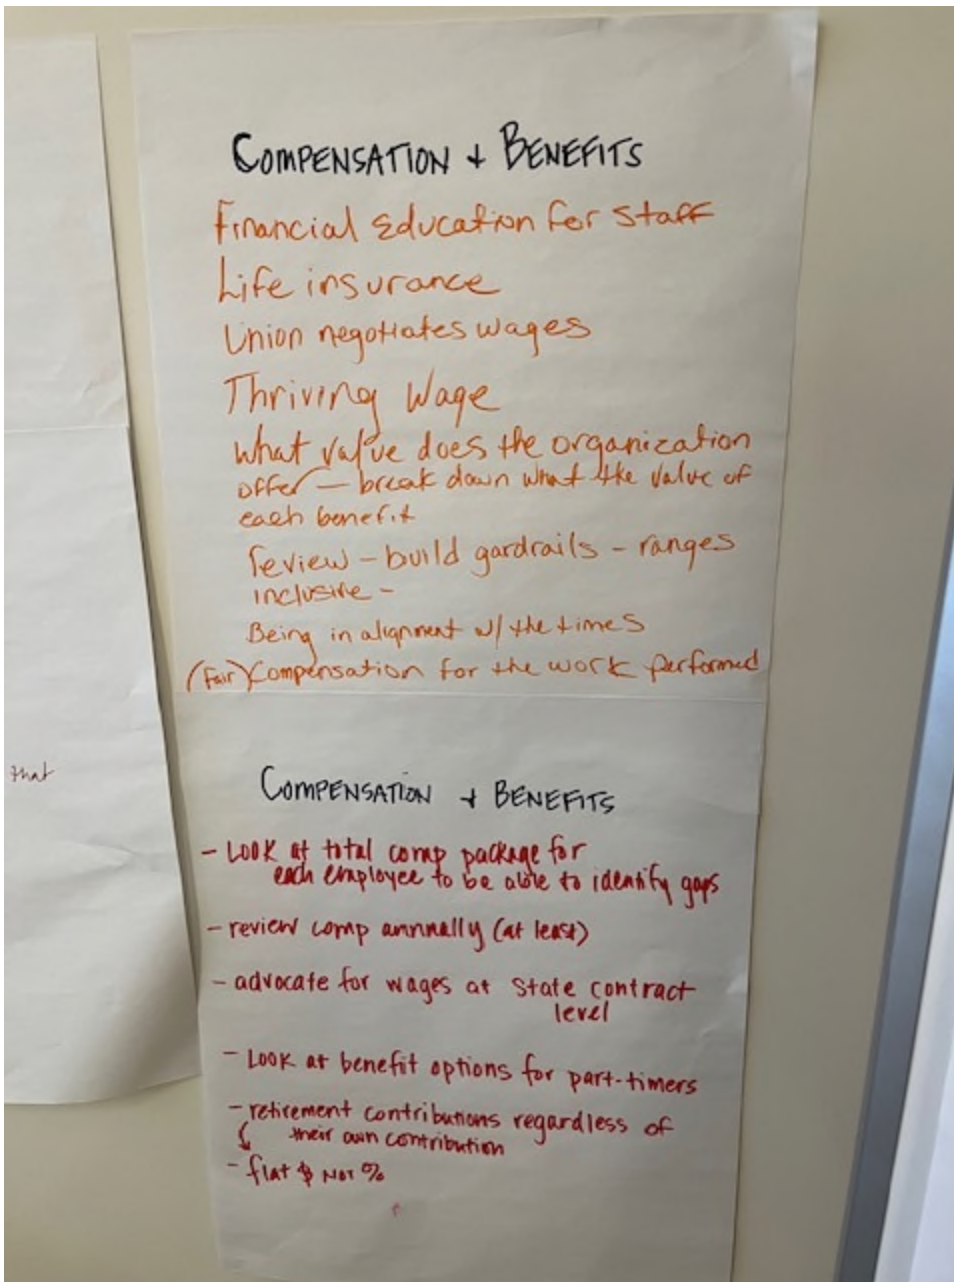 COMPENSATION + BENEFITS
Financial Education for Staff
Life insurance
Union negotiates wages
Thriving Wage
What value does the organization
offer — break down what the value of
each benefit
review – build gardrails – ranges
inclusive –
Being in alignment w/ the times
(Fair) Compensation for the work performed
that
COMPENSATION + BENEFITS
- LOOK at total comp package for
each employee to be able to identify gaps
- review comp annnally (at least)
- advocate for wages at State contract
level
- LOOK at benefit options for part-timers
- retirement contributions regardless of
their own contribution
- flat $ NOT %